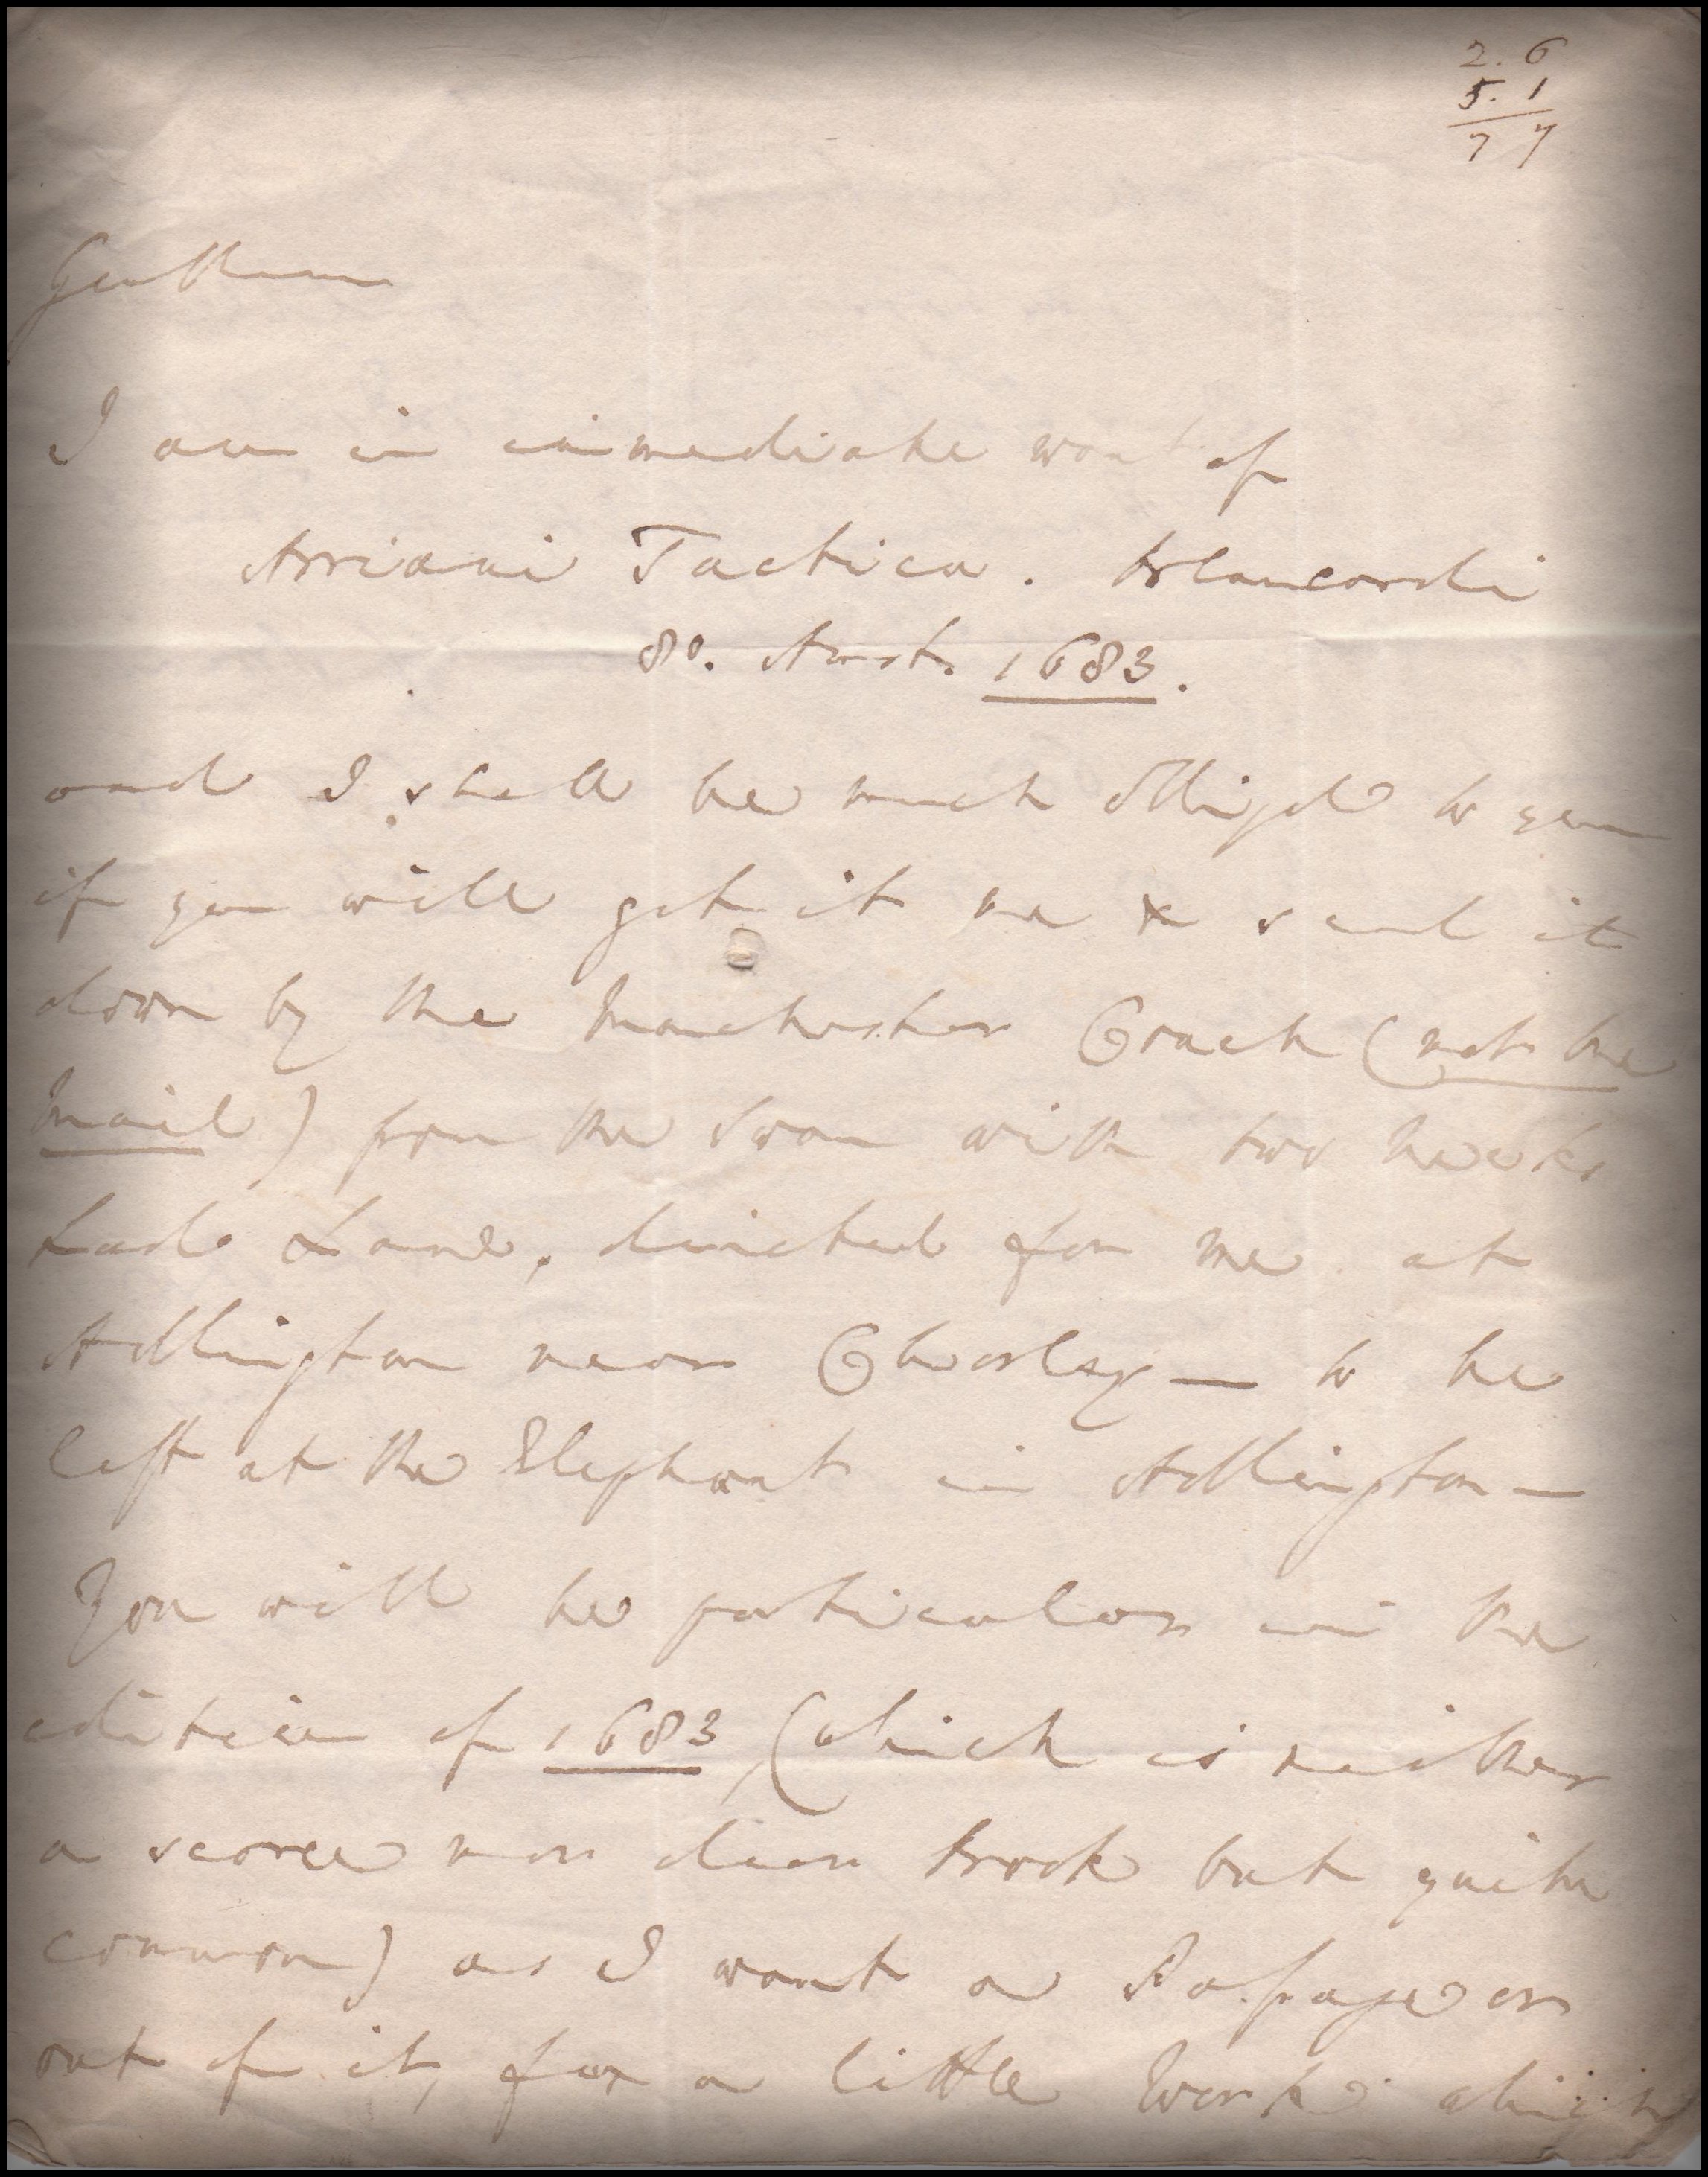 2. 6
5. 1
7 7
Gentlemen
I am in immediate want of
Arriani Tactica. Blancardi
8o. Amst. 1683.
and I shall be much obliged to you
if you will get it me & send it
down by the Manchester Coach (not the
Mail) from the Swan with two Necks
Lad Lane, directed for me at
Adlington near Chorley — to be
left at the Elephant in Adlington —
You will be particular in the
edition of 1683, (which is neither
a scarce nor dear book but quite
common) as I want a Passage or
out of it, for a little Work which